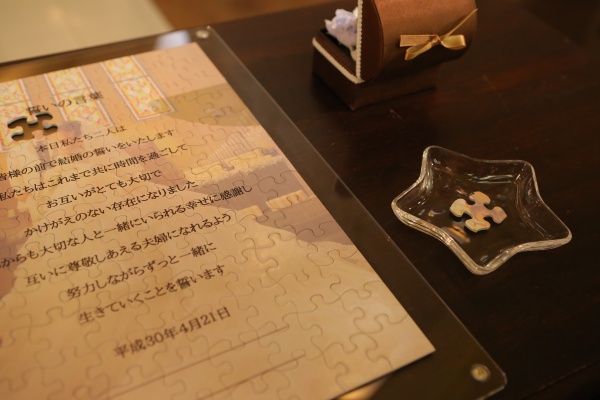 誓いの言葉
本日私たち二人は
皆様の前で結婚の誓いをいたします
私たちはこれまで共に時間を過ごして
お互いがとても大切で
かけがえのない存在になりました
からも大切な人と一緒にいられる幸せに感謝し
互いに尊敬しあえる夫婦になれるよう
努力しながらずっと一緒に
生きていくことを誓います
平成30年4月21日